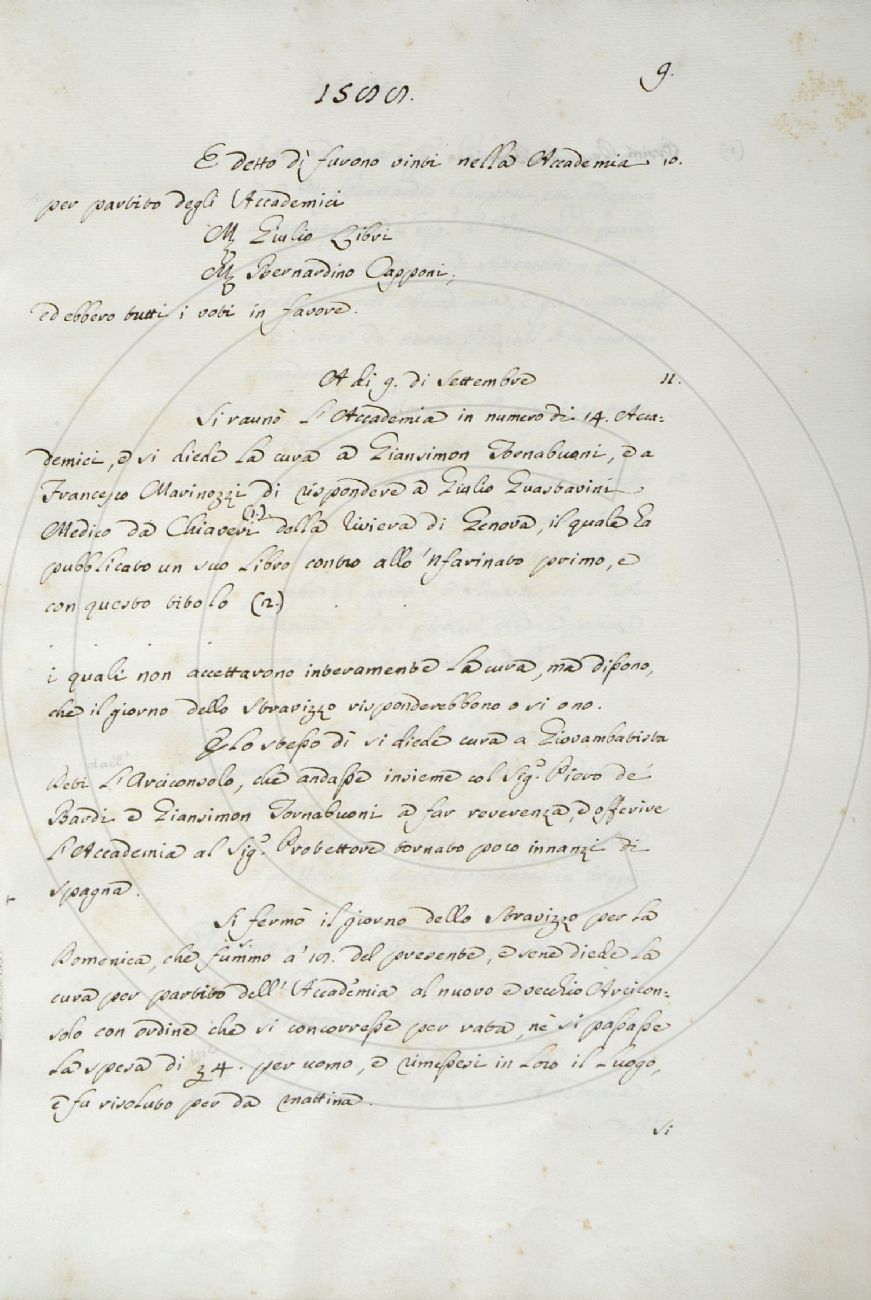 9.
1588.
E detto dì furono vinti nella Accademia 10.
per partito degli Accademici
M. Giulio Libri
M. Bernardino Capponi,
ed ebbero tutti i voti in favore.
A di 9. di Settembre 11.
Si raunò l'Accademia in numero di 14. Acca=
demici, e si diede la cura a Giansimon Tornabuoni, e a
Francesco Marinozzi di rispondere a Giulio Guastavini
Medico da Chiaveri (1.) della Riviera di Genova, il quale ha
pubblicato un suo Libro contro allo 'Nfarinato primo, e
con questo titolo (2.) . .
i quali non accettarono interamente la cura, ma dissono,
che il giorno dello Stravizzo risponderebbono o sì o no.
E lo stesso dì si diede cura a Giovambatista
Deti l'Arciconsolo, che andasse insieme col Sigr. Piero de'
Bardi e Giansimon Tornabuoni a far reverenza, e offerire
l'Accademia al Sigr. Protettore tornato poco innanzi di
Spagna.
Si fermò il giorno dello Stravizzo per la
Domenica, che fussimo a' 19. del presente, e sene diede la
cura per partito dell'Accademia al nuovo e vecchio Arcicon=
solo con ordine che si concorresse per rata, nè si passasse
la spesa di 4. per uomo, e rimessesi in loro il luogo,
e fu risoluto per da mattina.
si